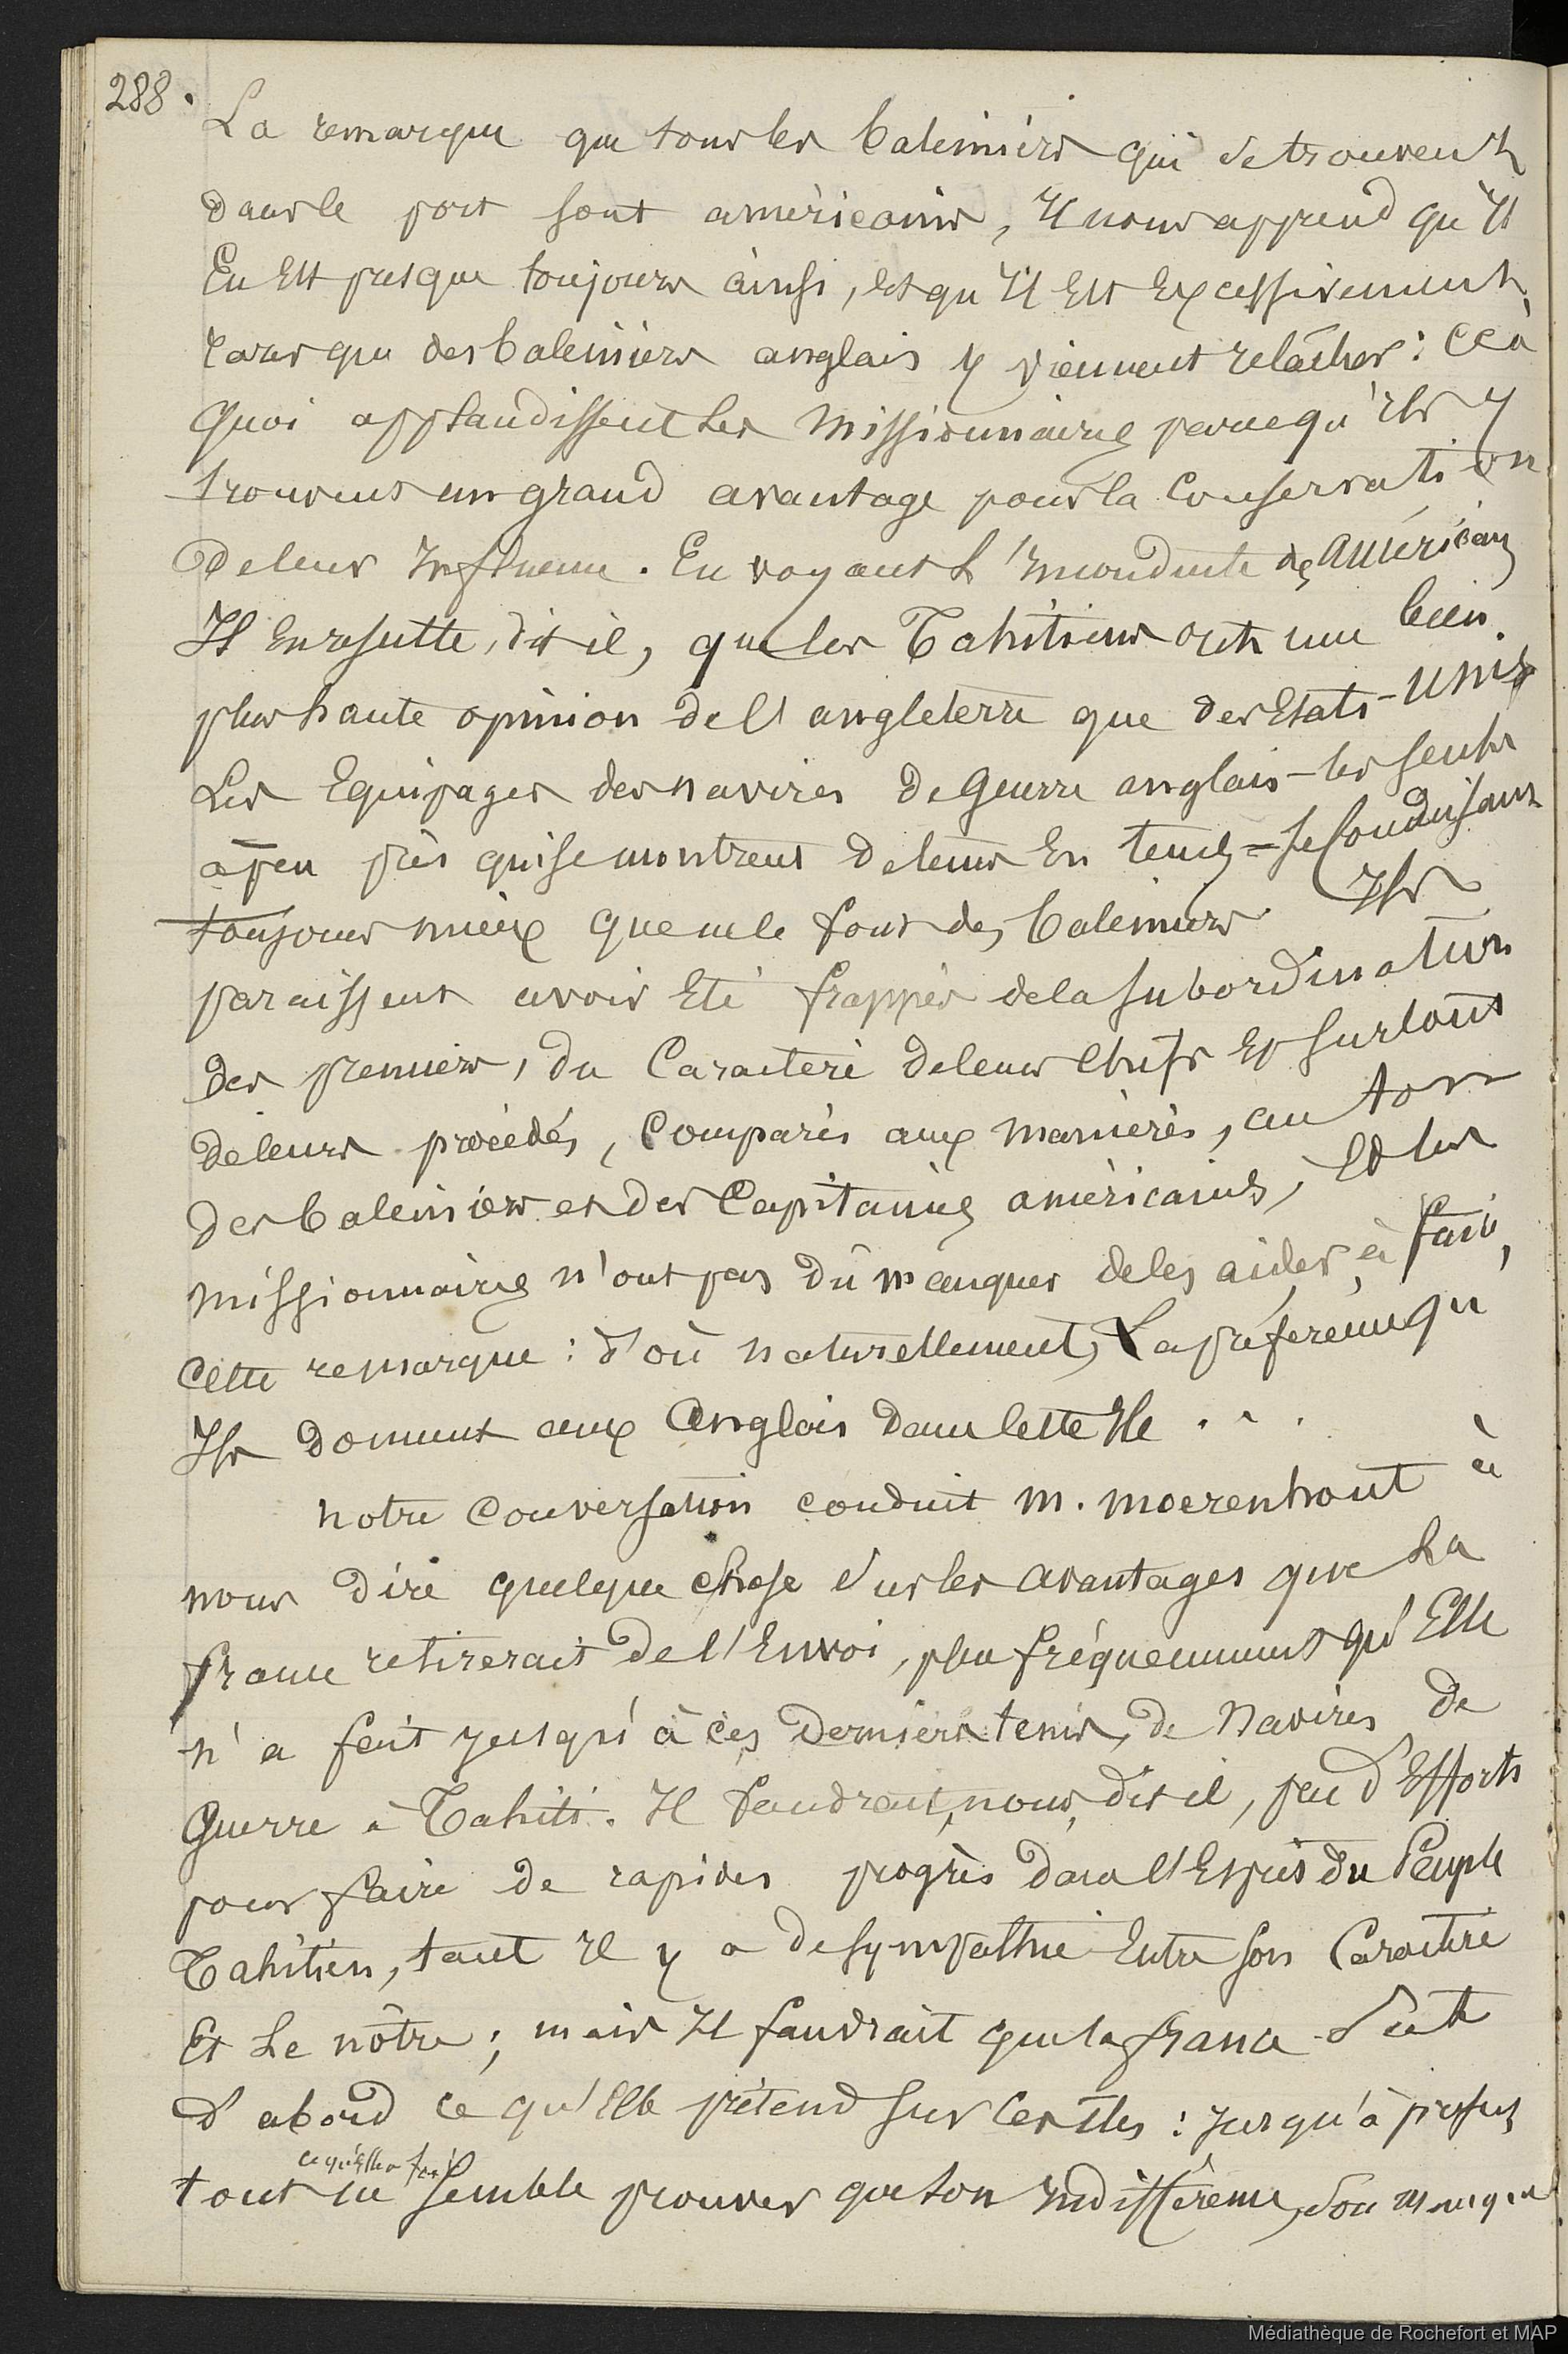 288.
La remarque que tous les baleiniers qui se trouvent
dans le port sont américains, Il nous apprend qu'Il
En Est presque toujours ainsi, et qu'Il Est Excessivement
rares que des baleiniers anglais y viennent relâcher : Ce à
quoi applaudissent les Missionnaires parce qu'Ils y
trouvent un grand avantage pour la Conservation
de leur Influence. En voyant l'Inconduite des américains
Il En résulte, dit il, que les Tahitiens ont une bien
plus haute opinion de l'angleterre que des Etats-unis
Les Equipages des navires de guerre anglais - les seuls
à peu près qui se montrent de temps En temps = se Conduisant
toujours mieux que ne le font des baleiniers Ils
paraissent avoir Eté frappés de la subordination
des premiers, du Caractère de leurs chefs Et surtout
de leurs procédés, Comparés aux manières, au ton
des baleiniers et des Capitaines américains, Et les
missionnaires n'ont pas dû manquer de les aider à faire
cette remarque : d'où naturellement, La préférence qu'
Ils donnent aux anglais dans cette Ile . . .
notre conversation conduit M. Moerenhout à
nous dire quelque chose sur les avantages que La
france retirerait de l'Envoi, plus fréquemment qu'Elle
n'a fait jusqu'à ces derniers tems, de Navires de
Guerre à Tahiti. Il faudrait, nous dit il, peu d'Efforts
pour faire de rapides progrès dans l'Esprit du Peuple
Tahitien, tant Il y a de sympathie Entre son Caractère
Et Le nôtre ; mais Il faudrait que la france sut
d'abord ce qu'Elle prétend sur ces Iles : jusqu'à présent
ce qu'Elle a fait
tout semble prouver que son Indifférence, son manque